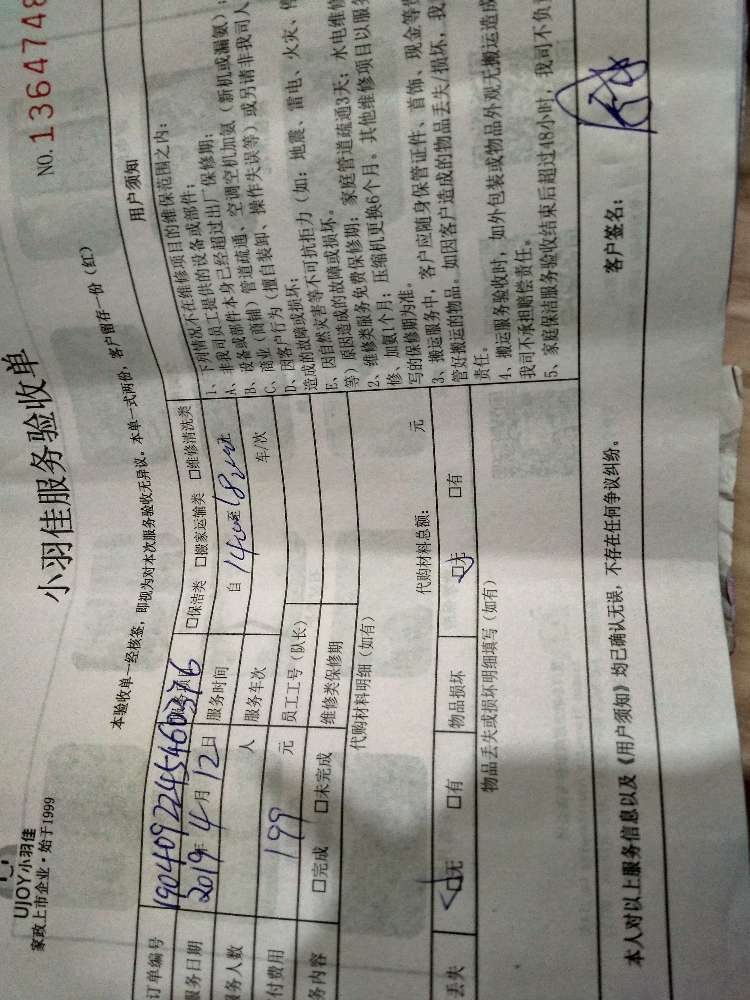 UJOY小羽佳
家政上市企业·始于1999
小羽佳服务验收单
NO.1364748
本验收单一经核签，即视为对本次服务验收无异议。本单一式两份，客户留存一份（红）
订单编号 1904092245460376
服务日期 2019年4月12日
服务人数 人
付费用 199 元
务内容 □完成 □未完成
□保洁类 □搬家运输类 □维修清洗类
服务时间 自 1400 至 1800 止
服务车次 车/次
员工工号（队长）
维修类保修期
代购材料明细（如有） 代购材料总额： 元
丢失 □无 □有 物品损坏 □无 □有
物品丢失或损坏明细填写（如有）
用户须知
1、下列情况不在维修项目的维保范围之内：
A、非我司员工提供的设备或部件；
B、设备或部件本身已经超过出厂保修期；
C、商业（商铺）管道疏通、空调空机加氨（新机或漏氨）；
D、因客户行为（擅自装卸、操作失误等）或另请非我司人
造成的故障或损坏；
E、因自然灾害等不可抗拒力（如：地震、雷电、火灾、
等）原因造成的故障或损坏。
2、维修类服务免费保修期：家庭管道疏通3天；水电维
修、加氨1个月；压缩机更换6个月。其他维修项目以服
写的保修期为准。
3、搬运服务中，客户应随身保管证件、首饰、现金等
管好搬运的物品。如因客户造成的物品丢失/损坏，我
责任。
4、搬运服务验收时，如外包装或物品外观无搬运造成
我司不承担赔偿责任。
5、家庭保洁服务验收结束后超过48小时，我司不负
本人对以上服务信息以及《用户须知》均已确认无误，不存在任何争议纠纷。
客户签名：